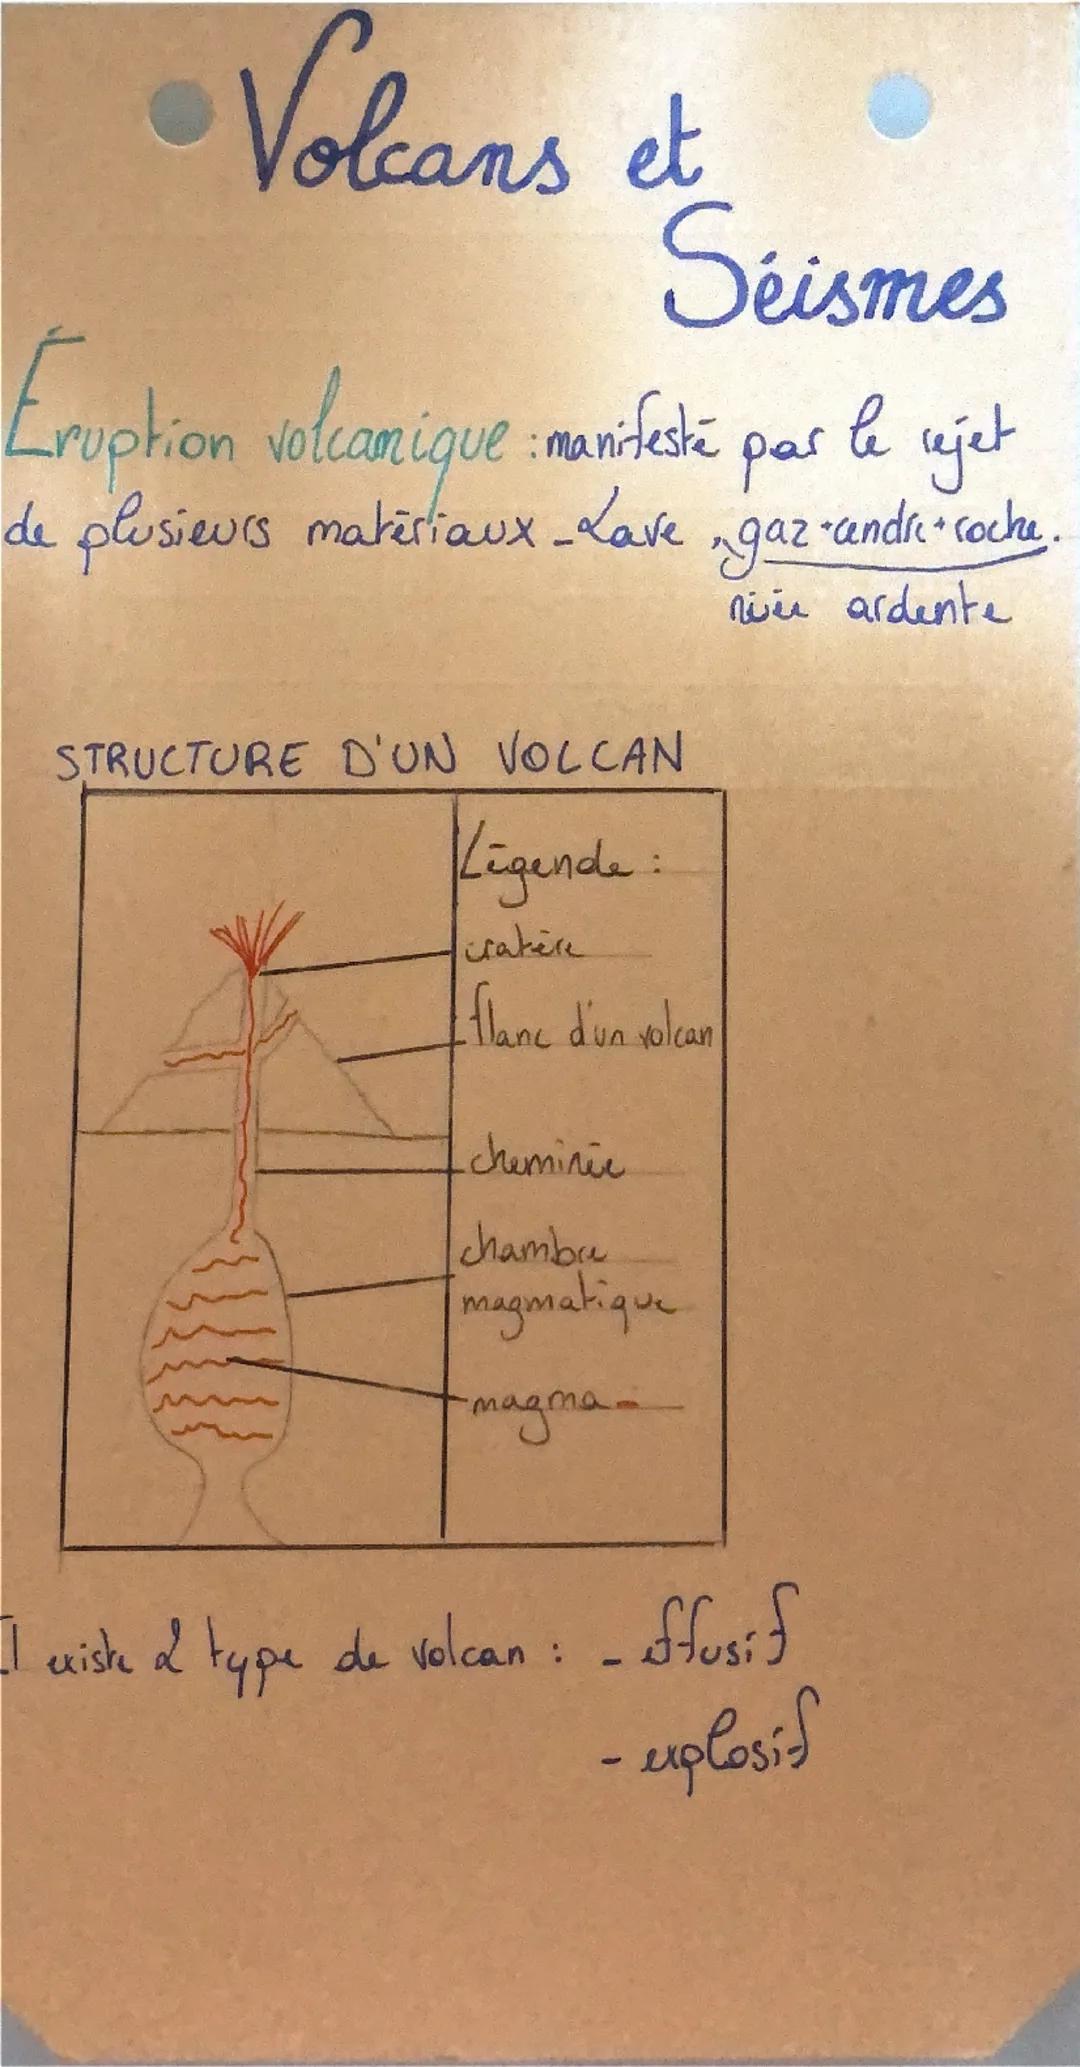 Volcans et
Séismes
Éruption volcanique : manifesté par le rejet
de plusieurs matériaux - Lave, gaz + cendre + roche.
nuée ardente
STRUCTURE D'UN VOLCAN
Légende :
cratère
flanc d'un volcan
cheminée
chambre
magmatique
magma
Il existe 2 type de volcan : - effusif
- explosif